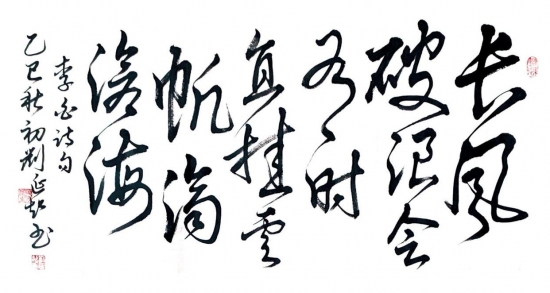 长风
破浪会
有时
直挂云
帆济
沧海
李白诗句
乙巳秋初刘延书